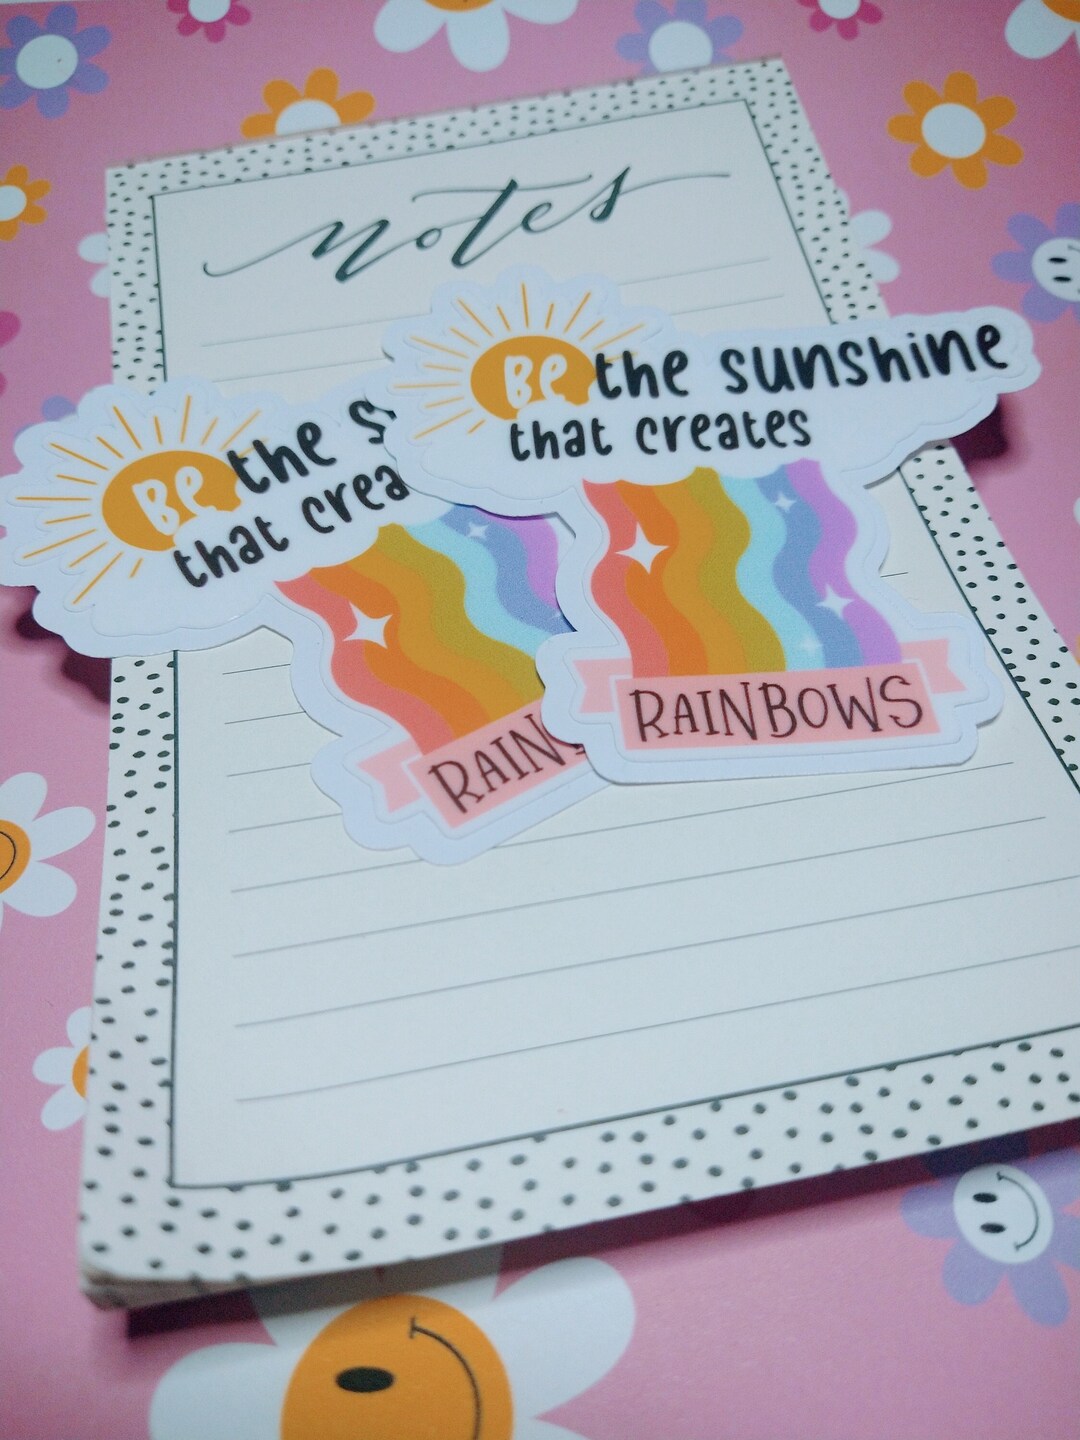 notes
Be the sunshine
that creates
RAINBOWS
Be the s
that crea
RAIN